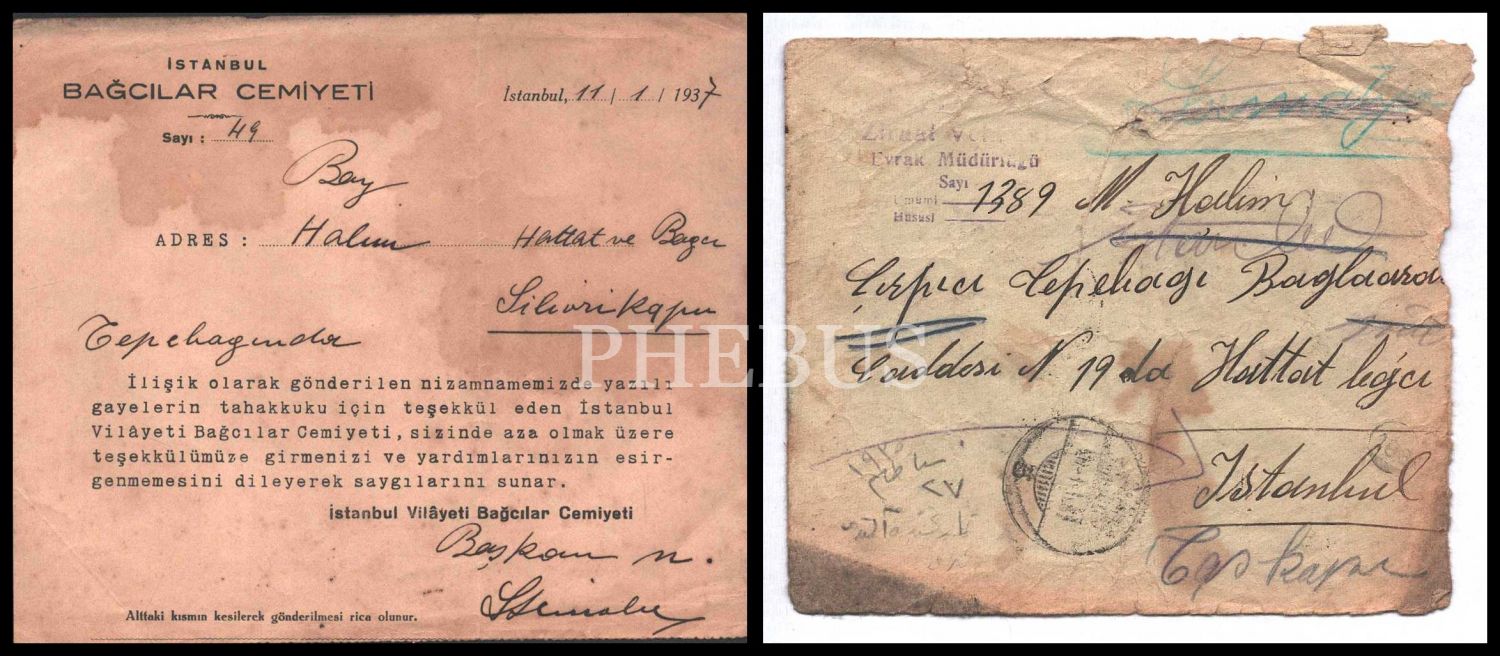 İSTANBUL
BAĞCILAR CEMİYETİ
İstanbul, 11 / 1 / 1937
Sayı : 49
Bay
ADRES : Halim Hattat ve Bagcı
Silivrikapu
Tepebagında
İlişik olarak gönderilen nizamnamemizde yazılı
gayelerin tahakkuku için teşekkül eden İstanbul
Vilâyeti Bağcılar Cemiyeti, sizinde aza olmak üzere
teşekkülümüze girmenizi ve yardımlarınızın esir-
genmemesini dileyerek saygılarını sunar.
İstanbul Vilâyeti Bağcılar Cemiyeti
Başkan n.
Alttaki kısmın kesilerek gönderilmesi rica olunur.
PHEBUS
Ziraat
Evrak Müdürlüğü
Sayı
Umumi 1389
Hususi
M. Halim
Çırpıcı Tepebagı
Caddesi N 19 da Hattat
Istanbul